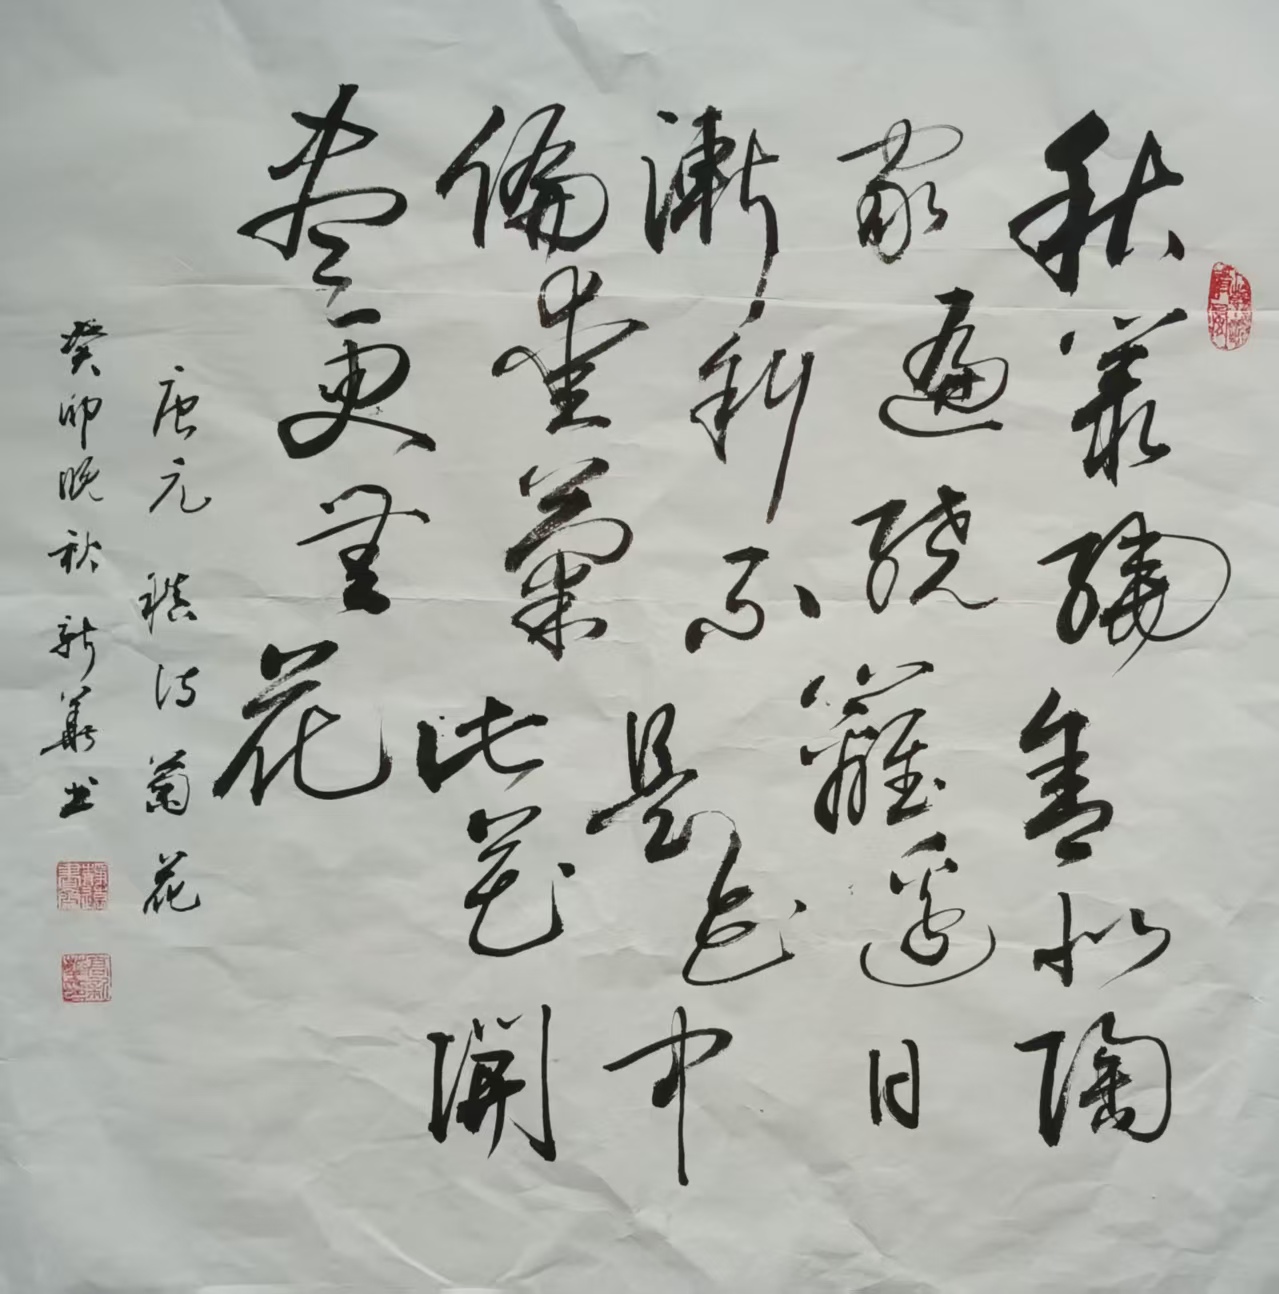 秋叢繞舍似陶
家遍繞籬邊日
漸斜不是花中
偏愛菊此花開
盡更無花
唐元稹詩菊花
癸卯晚秋新華书